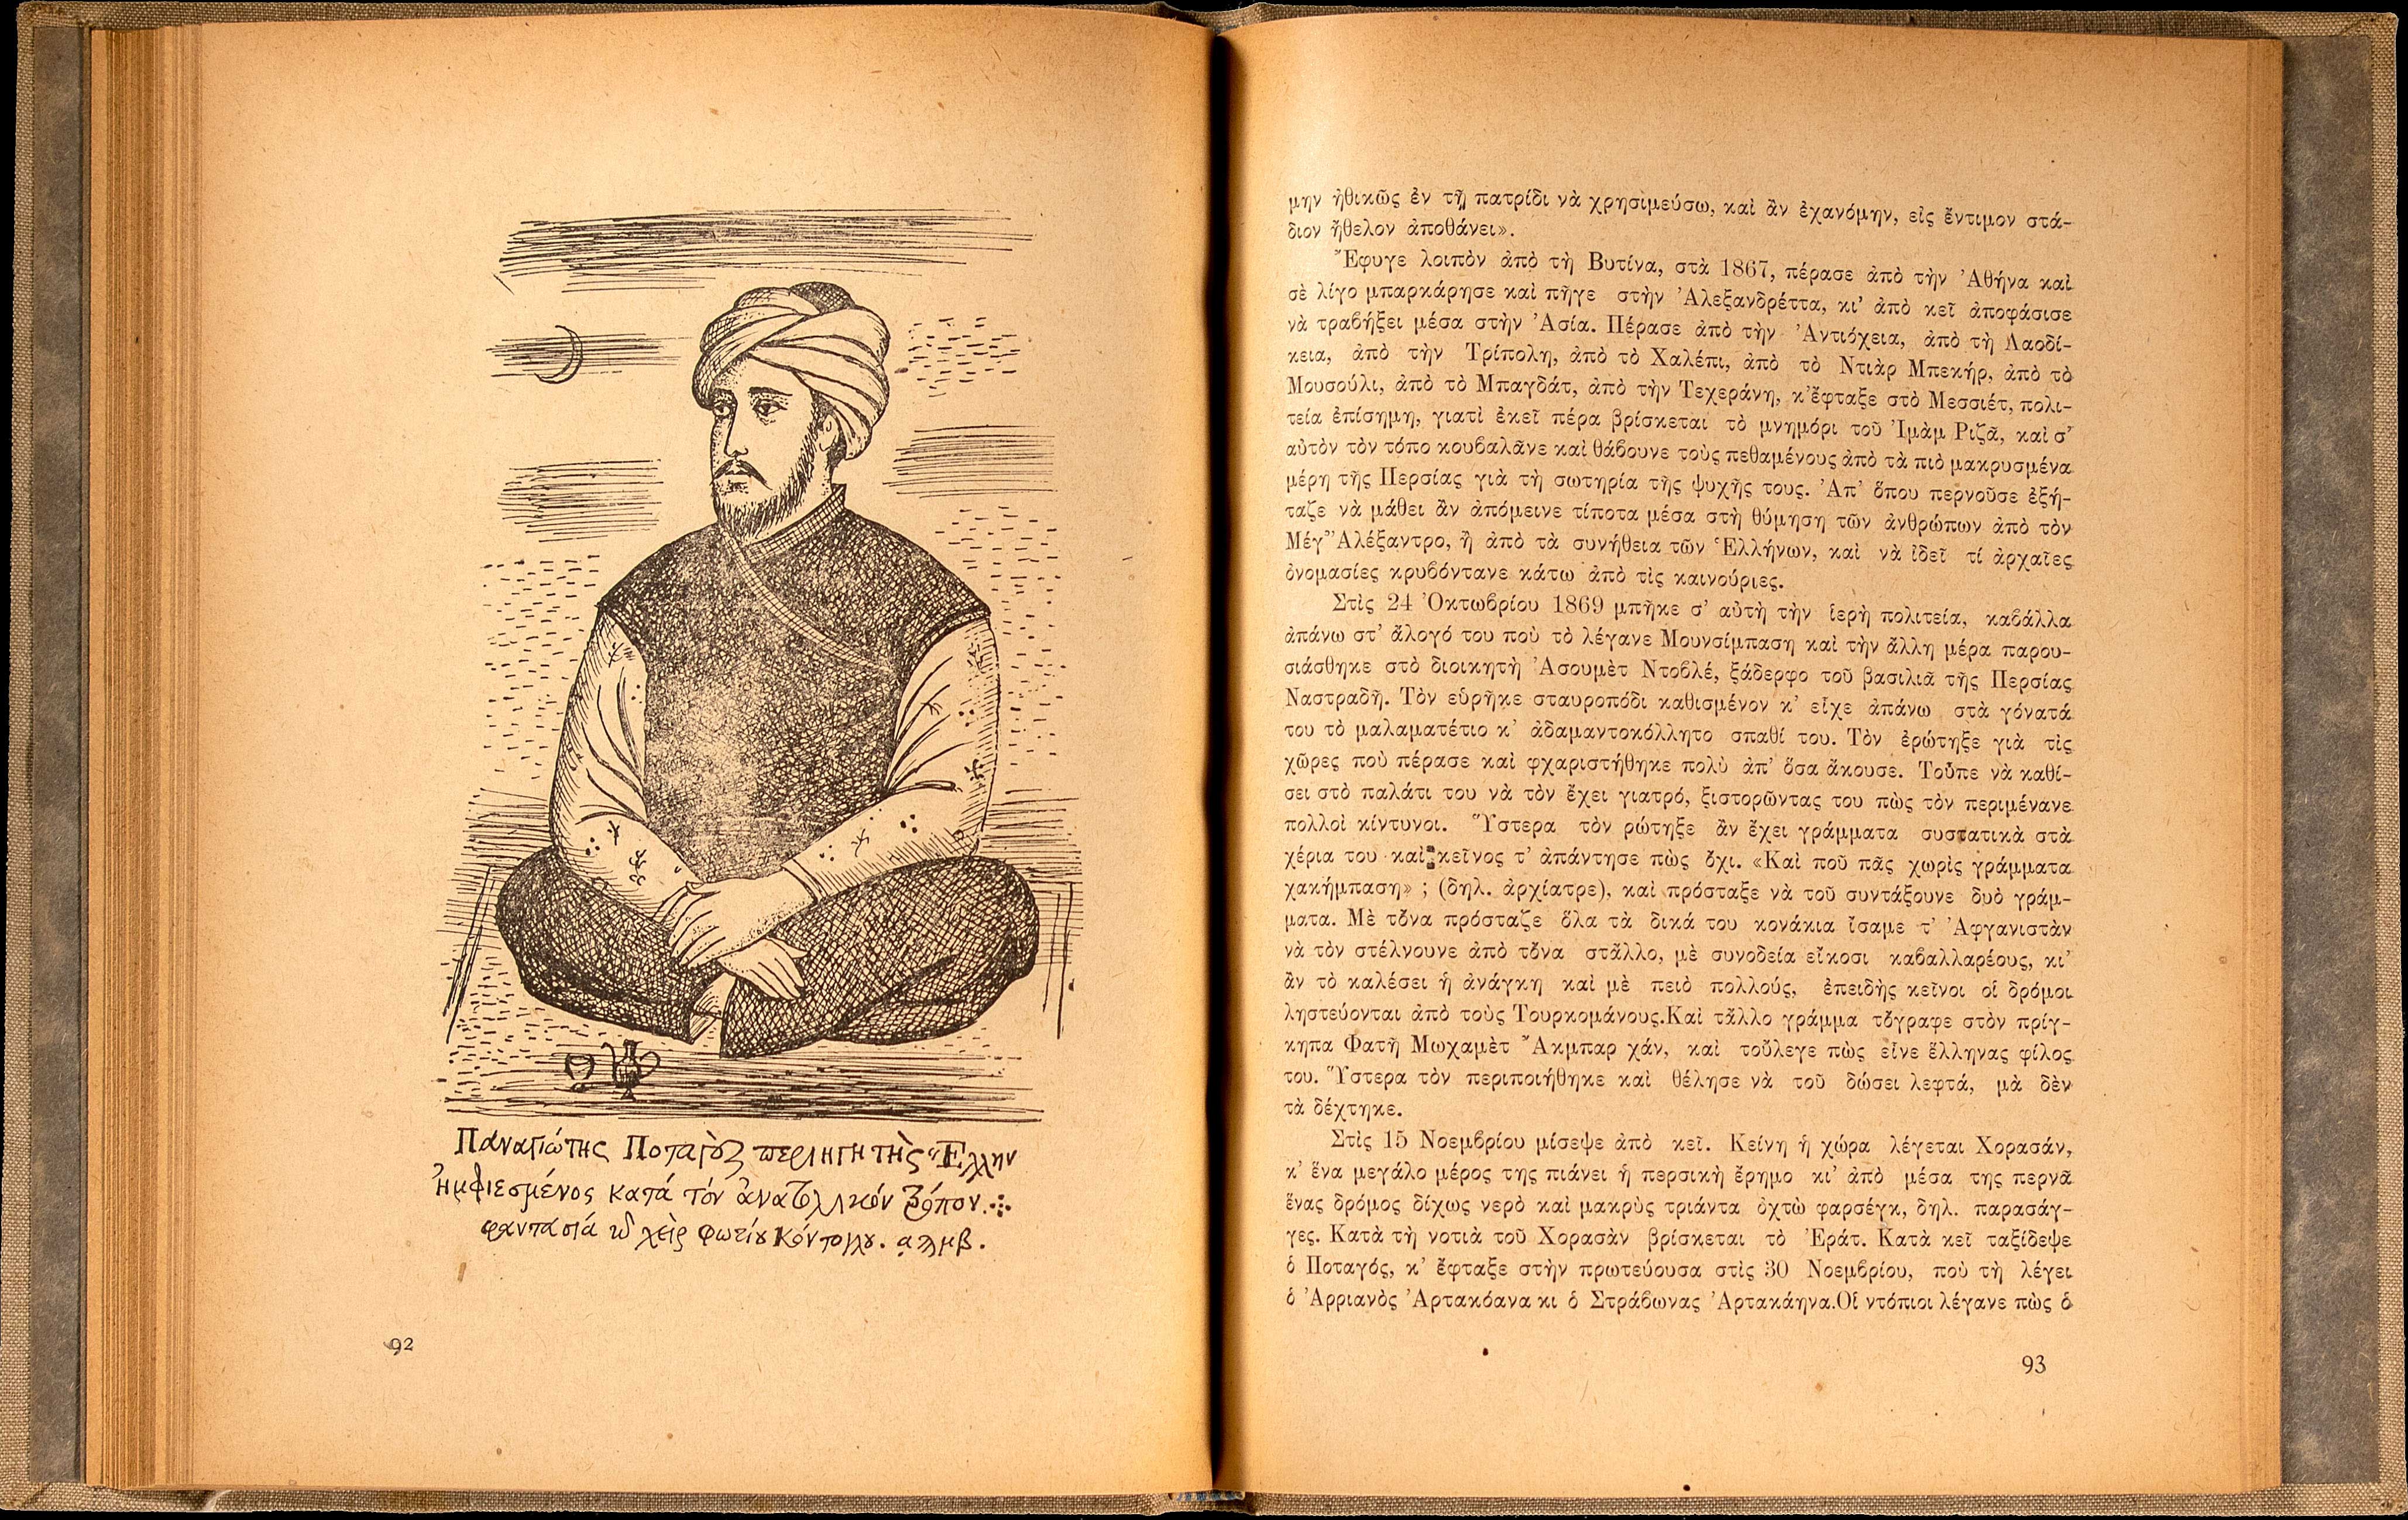 Παναγιώτης Ποταγὸς περιηγητὴς Ἕλλην
ἠμφιεσμένος κατά τόν ἀνατολικόν τρόπον
φαντασία καὶ χεὶρ Φωτίου Κόντογλου. αϡμβ.
92
μην ἠθικῶς ἐν τῇ πατρίδι νὰ χρησιμεύσω, καὶ ἂν ἐχανόμην, εἰς ἔντιμον στά-
διον ἤθελον ἀποθάνει».
Ἔφυγε λοιπὸν ἀπὸ τὴ Βυτίνα, στὰ 1867, πέρασε ἀπὸ τὴν Ἀθήνα καὶ
σὲ λίγο μπαρκάρησε καὶ πῆγε στὴν Ἀλεξανδρέττα, κι' ἀπὸ κεῖ ἀποφάσισε
νὰ τραβήξει μέσα στὴν Ἀσία. Πέρασε ἀπὸ τὴν Ἀντιόχεια, ἀπὸ τὴ Λαοδί-
κεια, ἀπὸ τὴν Τρίπολη, ἀπὸ τὸ Χαλέπι, ἀπὸ τὸ Ντιὰρ Μπεκήρ, ἀπὸ τὸ
Μουσούλι, ἀπὸ τὸ Μπαγδάτ, ἀπὸ τὴν Τεχεράνη, κ' ἔφταξε στὸ Μεσσιέτ, πολι-
τεία ἐπίσημη, γιατὶ ἐκεῖ πέρα βρίσκεται τὸ μνημόρι τοῦ Ἰμὰμ Ριζᾶ, καὶ σ'
αὐτὸν τὸν τόπο κουβαλᾶνε καὶ θάβουνε τοὺς πεθαμένους ἀπὸ τὰ πιὸ μακρυσμένα
μέρη τῆς Περσίας γιὰ τὴ σωτηρία τῆς ψυχῆς τους. Ἀπ' ὅπου περνοῦσε ἐξή-
ταζε νὰ μάθει ἂν ἀπόμεινε τίποτα μέσα στὴ θύμηση τῶν ἀνθρώπων ἀπὸ τὸν
Μέγ' Ἀλέξαντρο, ἢ ἀπὸ τὰ συνήθεια τῶν Ἑλλήνων, καὶ νὰ ἰδεῖ τί ἀρχαῖες
ὀνομασίες κρυβόντανε κάτω ἀπὸ τὶς καινούριες.
Στὶς 24 Ὀκτωβρίου 1869 μπῆκε σ' αὐτὴ τὴν ἱερὴ πολιτεία, καβάλλα
ἀπάνω στ' ἄλογό του ποὺ τὸ λέγανε Μουνσίμπαση καὶ τὴν ἄλλη μέρα παρου-
σιάσθηκε στὸ διοικητὴ Ἀσουμὲτ Ντοβλέ, ξάδερφο τοῦ βασιλιᾶ τῆς Περσίας
Ναστραδῆ. Τὸν εὑρῆκε σταυροπόδι καθισμένον κ' εἶχε ἀπάνω στὰ γόνατά
του τὸ μαλαματέτιο κ' ἀδαμαντοκόλλητο σπαθί του. Τὸν ἐρώτηξε γιὰ τὶς
χῶρες ποὺ πέρασε καὶ φχαριστήθηκε πολὺ ἀπ' ὅσα ἄκουσε. Τοὖπε νὰ καθί-
σει στὸ παλάτι του νὰ τὸν ἔχει γιατρό, ξιστορῶντας του πὼς τὸν περιμένανε
πολλοὶ κίντυνοι. Ὕστερα τὸν ρώτηξε ἂν ἔχει γράμματα συστατικὰ στὰ
χέρια του καὶ κεῖνος τ' ἀπάντησε πὼς ὄχι. «Καὶ ποῦ πᾶς χωρὶς γράμματα
χακήμπαση» ; (δηλ. ἀρχίατρε), καὶ πρόσταξε νὰ τοῦ συντάξουνε δυὸ γράμ-
ματα. Μὲ τὄνα πρόσταζε ὅλα τὰ δικά του κονάκια ἴσαμε τ' Ἀφγανιστὰν
νὰ τὸν στέλνουνε ἀπὸ τὄνα στἄλλο, μὲ συνοδεία εἴκοσι καβαλλαρέους, κι'
ἂν τὸ καλέσει ἡ ἀνάγκη καὶ μὲ πειὸ πολλούς, ἐπειδὴς κεῖνοι οἱ δρόμοι
ληστεύονται ἀπὸ τοὺς Τουρκομάνους.Καὶ τἄλλο γράμμα τὄγραφε στὸν πρίγ-
κηπα Φατῆ Μωχαμὲτ Ἄκμπαρ χάν, καὶ τοὔλεγε πὼς εἶνε ἕλληνας φίλος
του. Ὕστερα τὸν περιποιήθηκε καὶ θέλησε νὰ τοῦ δώσει λεφτά, μὰ δὲν
τὰ δέχτηκε.
Στὶς 15 Νοεμβρίου μίσεψε ἀπὸ κεῖ. Κείνη ἡ χώρα λέγεται Χορασάν,
κ' ἕνα μεγάλο μέρος της πιάνει ἡ περσικὴ ἔρημο κι' ἀπὸ μέσα της περνᾶ
ἕνας δρόμος δίχως νερὸ καὶ μακρὺς τριάντα ὀχτὼ φαρσέγκ, δηλ. παρασάγ-
γες. Κατὰ τὴ νοτιὰ τοῦ Χορασὰν βρίσκεται τὸ Ἐράτ. Κατὰ κεῖ ταξίδεψε
ὁ Ποταγός, κ' ἔφταξε στὴν πρωτεύουσα στὶς 30 Νοεμβρίου, ποὺ τὴ λέγει
ὁ Ἀρριανὸς Ἀρτακόανα κι ὁ Στράβωνας Ἀρτακάηνα.Οἱ ντόπιοι λέγανε πὼς ὁ
93